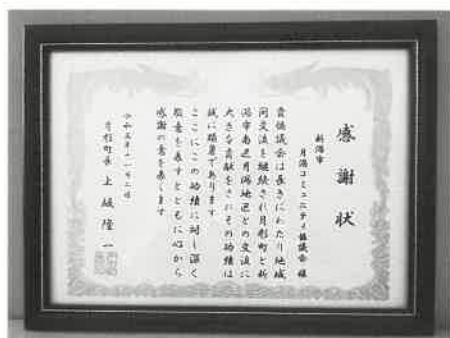 感謝状
新潟市
月潟コミュニティ協議会 様
貴協議会は長きにわたり地域
間交流を継続され月形町と新
潟市南区月潟地区との交流に
大きな貢献をされその功績は
誠に顕著であります
ここにこの功績に対し深く
敬意を表すとともに心から
感謝の意を表します
令和五年十一月二日
月形町長 上坂隆一